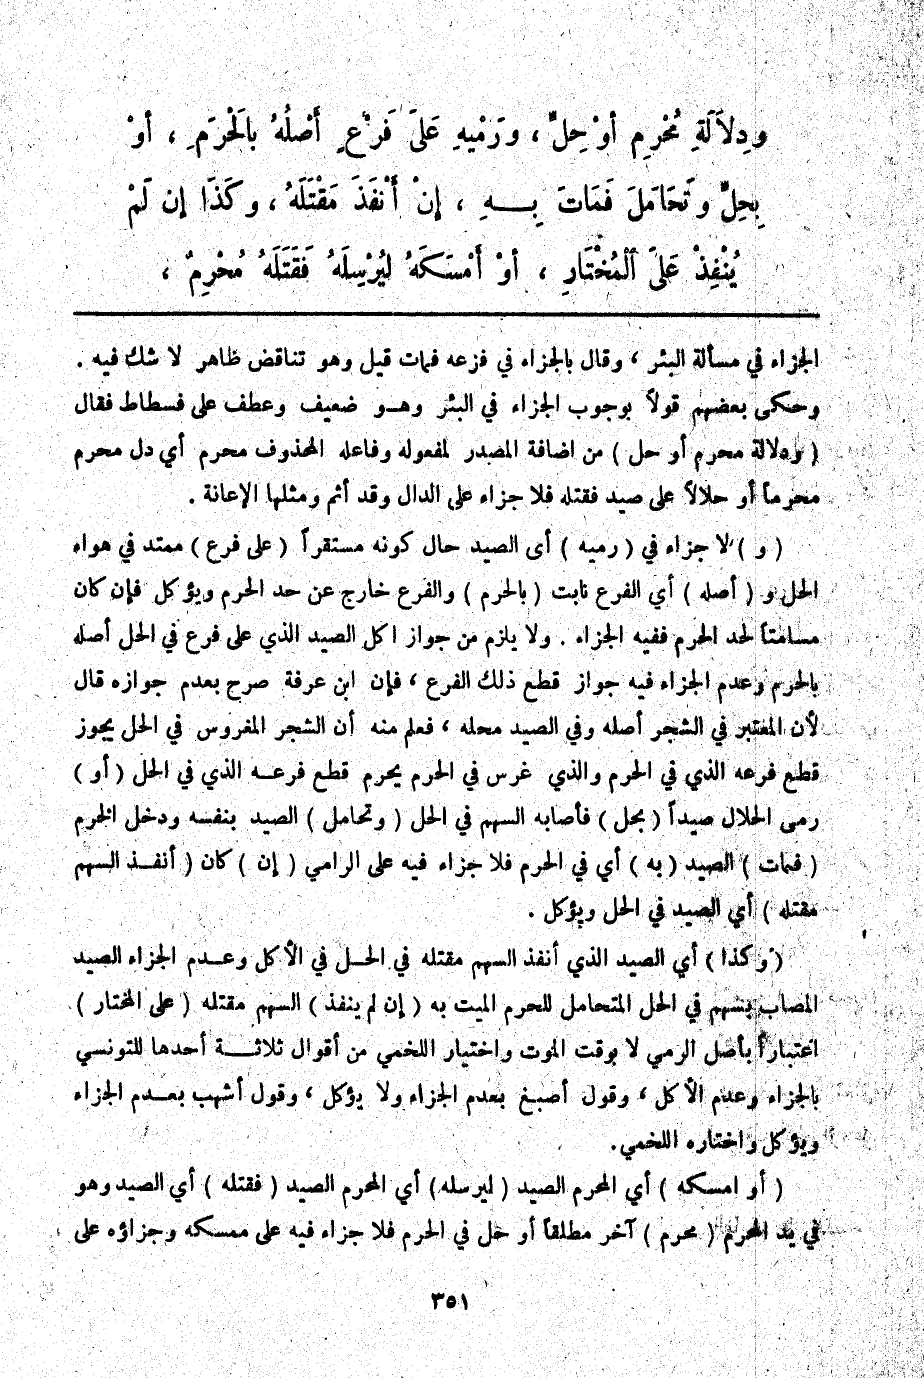 ودِلَالَةِ مُحْرِمٍ أوْ حِلٍّ ، ورَمْيِهِ عَلَى فَرْعٍ أَصْلُهُ بِالْحَرَمِ ، أوْ
بِحِلٍّ وتَحَامَلَ فَمَاتَ بِـــهِ ، إنْ أَنْفَذَ مَقْتَلَهُ ، وكَذَا إن لَمْ
يُنْفِذْ عَلَى ٱلْمُخْتَارِ ، أوْ أَمْسَكَهُ لِيُرْسِلَهُ فَقَتَلَهُ مُحْرِمٌ ،
الجزاء في مسألة البئر ، وقال بالجزاء في فزعه فمات قيل وهو تناقض ظاهر لا شك فيه .
وحكى بعضهم قولاً بوجوب الجزاء في البئر وهــو ضعيف وعطف على فسطاط فقال
( ودلالة محرم أو حل ) من اضافة المصدر لمفعوله وفاعله المحذوف محرم أي دل محرم
محرماً أو حلالاً على صيد فقتله فلا جزاء على الدال وقد أثم ومثلها الإعانة .
( و ) لا جزاء في ( رميه ) أى الصيد حال كونه مستقراً ( على فرع ) ممتد في هواء
الحل و ( أصله ) أي الفرع نابت ( بالحرم ) والفرع خارج عن حد الحرم ويؤكل فإن كان
مسامتاً لحد الحرم ففيه الجزاء . ولا يلزم من جواز اكل الصيد الذي على فرع في الحل أصله
بالحرم وعدم الجزاء فيه جواز قطع ذلك الفرع ، فإن ابن عرفة صرح بعدم جوازه قال
لأن المعتبر في الشجر أصله وفي الصيد محله ، فعلم منه أن الشجر المغروس في الحل يجوز
قطع فرعه الذي في الحرم والذي غرس في الحرم يحرم قطع فرعــه الذي في الحل ( أو )
رمى الحلال صيداً ( بحل ) فأصابه السهم في الحل ( وتحامل ) الصيد بنفسه ودخل الحرم
( فمات ) الصيد ( به ) أي في الحرم فلا جزاء فيه على الرامي ( إن ) كان ( أنفــذ السهم
مقتله ) أي الصيد في الحل ويؤكل .
( وكذا ) أي الصيد الذي أنفذ السهم مقتله في الحــل في الأكل وعــدم الجزاء الصيد
المصاب بسهم في الحل المتحامل للحرم الميت به ( إن لم ينفذ ) السهم مقتله ( على المختار )
اعتباراً بأصل الرمي لا بوقت الموت واختيار اللخمي من أقوال ثلاثــــة أحدها للتونسي
بالجزاء وعدم الأكل ، وقول أصبغ بعدم الجزاء ولا يؤكل ، وقول أشهب بعــدم الجزاء
ويؤكل واختاره اللخمي.
( أو امسكه ) أي المحرم الصيد ( ليرسله) أي المحرم الصيد ( فقتله ) أي الصيد وهو
في يد المحرم ( محرم ) آخر مطلقاً أو حل في الحرم فلا جزاء فيه على ممسكه وجزاؤه على
٣٥١